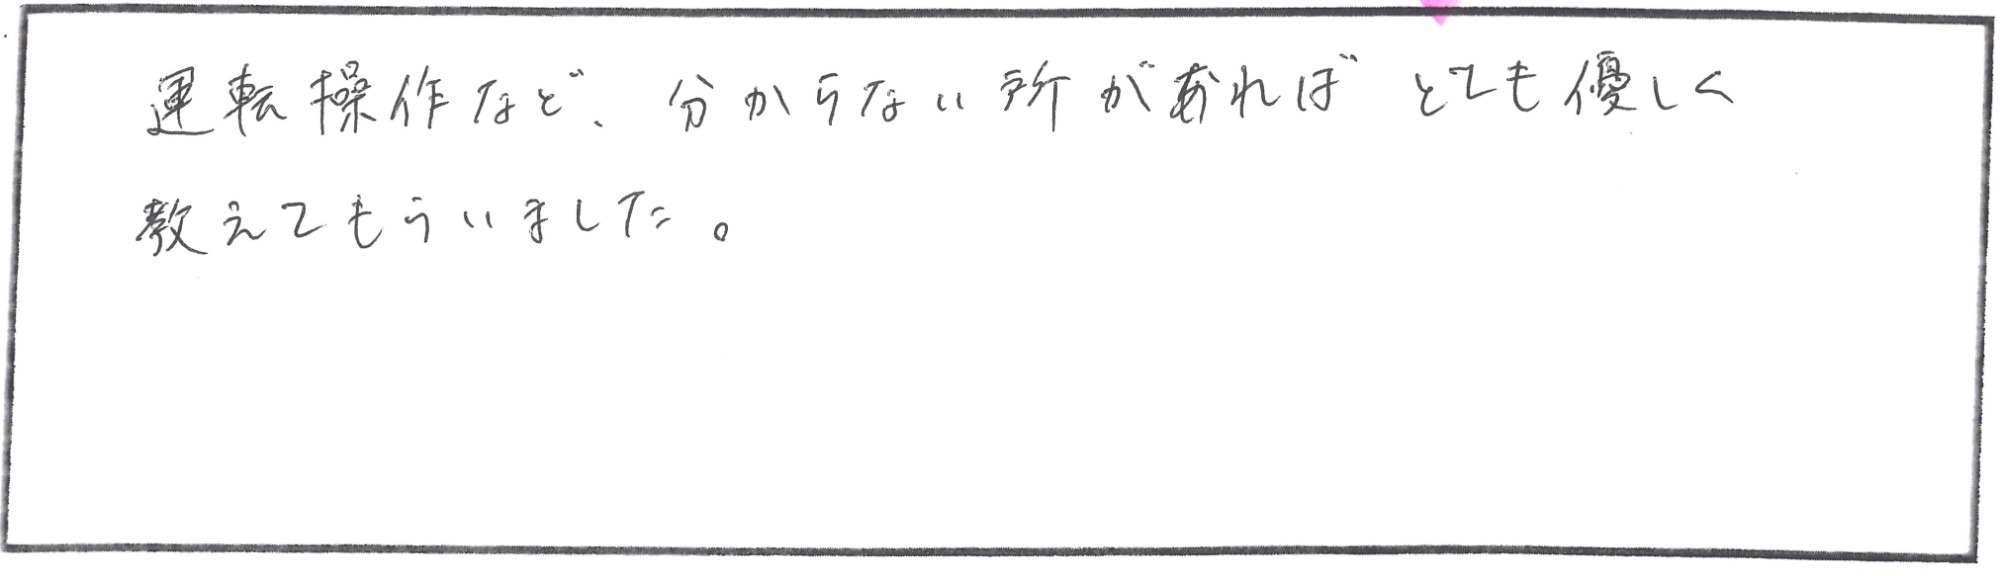 運転操作など、分からない所があればとても優しく
教えてもらいました。